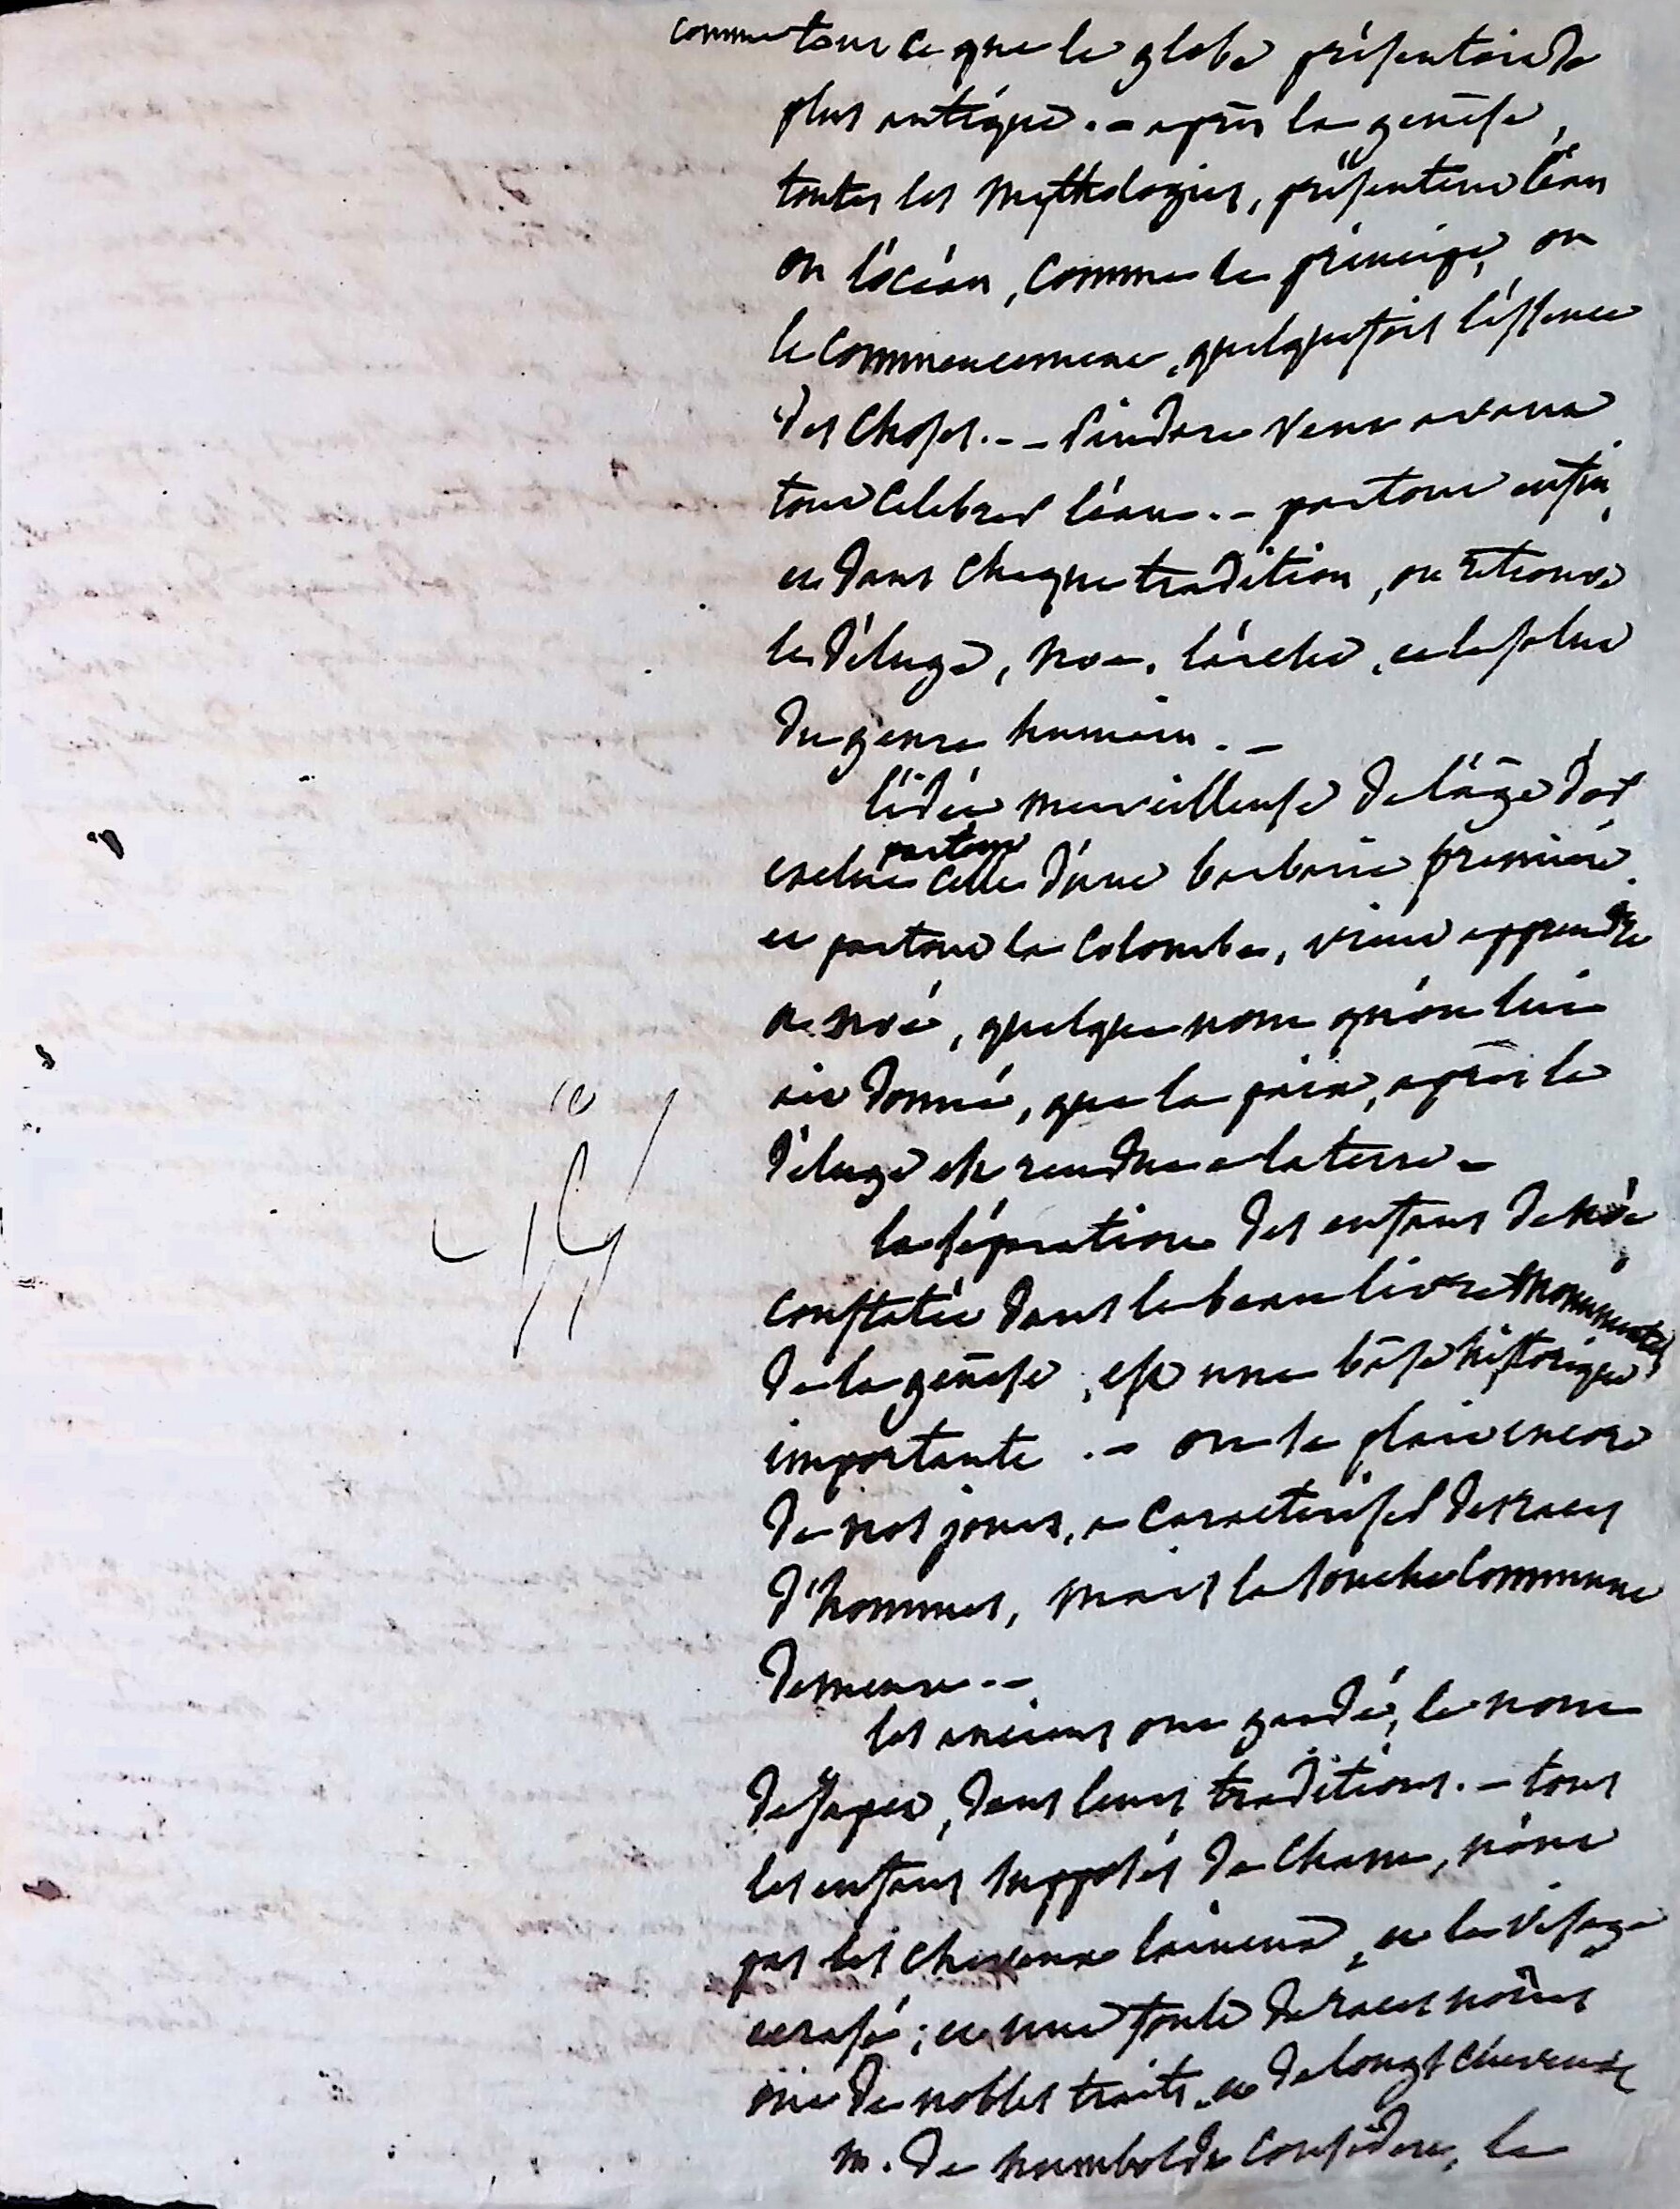 comme tout ce que le globe présentait de
plus antique. – après la genèse,
toutes les mythologies, présentent l'eau
ou l'océan, comme le principe, ou
le commencement, quelquefois l'essence
des choses. – – Pindare veut avant
tout celebrer l'eau. – partout enfin,
et dans chaque tradition, on retrouve
le déluge, noe, l'arche, et le salut
du genre humain. –
l'idée merveilleuse de l'âge d'or
exclut partout celle d'une barbarie première.
et partout la colombe, vient apprendre
a noé, quelque nom qu'on lui
ait donné, que la paix, après le
déluge est rendue a la terre –
la séparation des enfans de noé
constatée dans le beau livre monumental
de la genèse, est une bâse historique
importante. – on se plait encore
de nos jours, a caracteriser des races
d'hommes, mais la souche commune
demeure. –
les anciens ont gardé, le nom
de Japet, dans leurs traditions. – tous
les enfans supposés de Cham, n'ont
pas les cheveux laineux, et le visage
ecrasé; et une foule de races noires
ont de nobles traits, et de longs cheveux
m. de humboldt considere, la